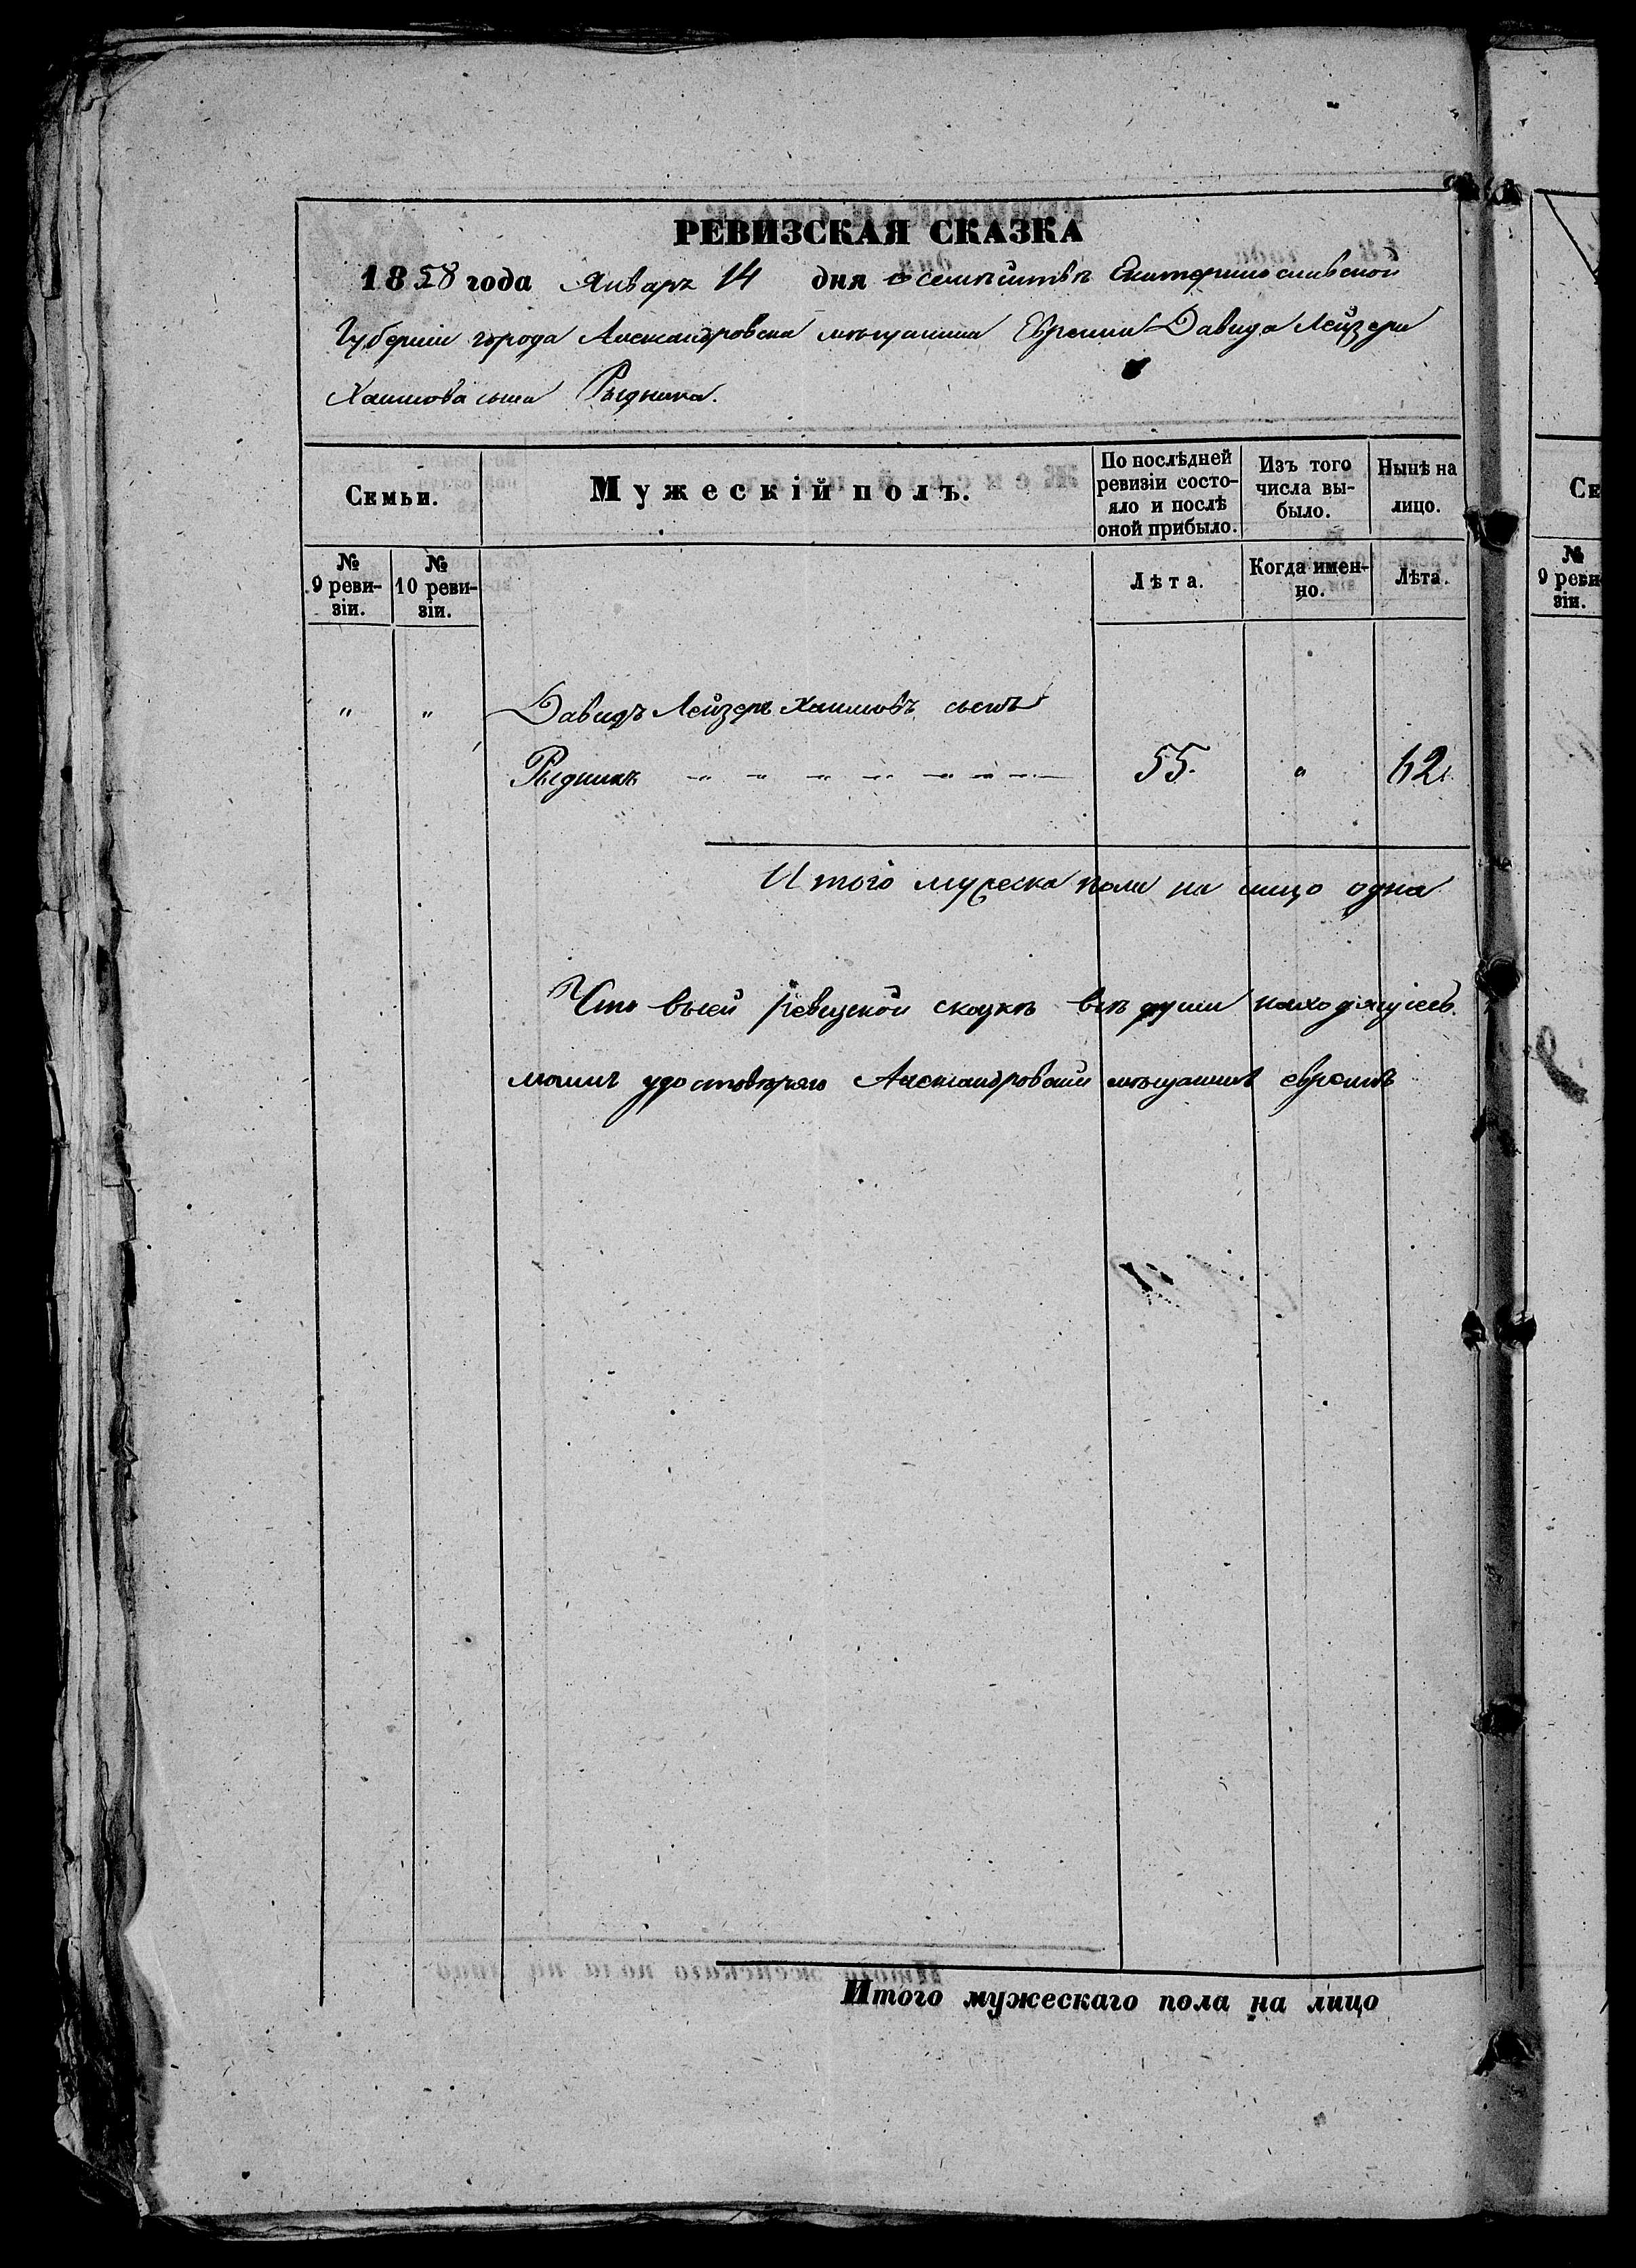 РЕВИЗСКАЯ СКАЗКА
1858 года Января 14 дня о семействѣ Екатеринославской
Губерніи города Александровска мѣщанина Еврея Давида Лейзера
Хаимова сына Рыдника.
Семьи.
Мужескій полъ.
По послѣдней
ревизіи состо-
яло и послѣ
оной прибыло.
Изъ того
числа вы-
было.
Нынѣ на
лицо.
№
9 реви-
зіи.
№
10 реви-
зіи.
Лѣта.
Когда имен-
но.
Лѣта.
" "
Давидъ Лейзеръ Хаимовъ сынъ
Рыдникъ 55. " 62
Итого мужеска пола на лицо одна
Что въ сей ревизской сказкѣ всѣ души находящіесь
удостовѣряю Александровскій мѣщанинъ еврей
Итого мужескаго пола на лицо
Се
№
9 реви
зіи.